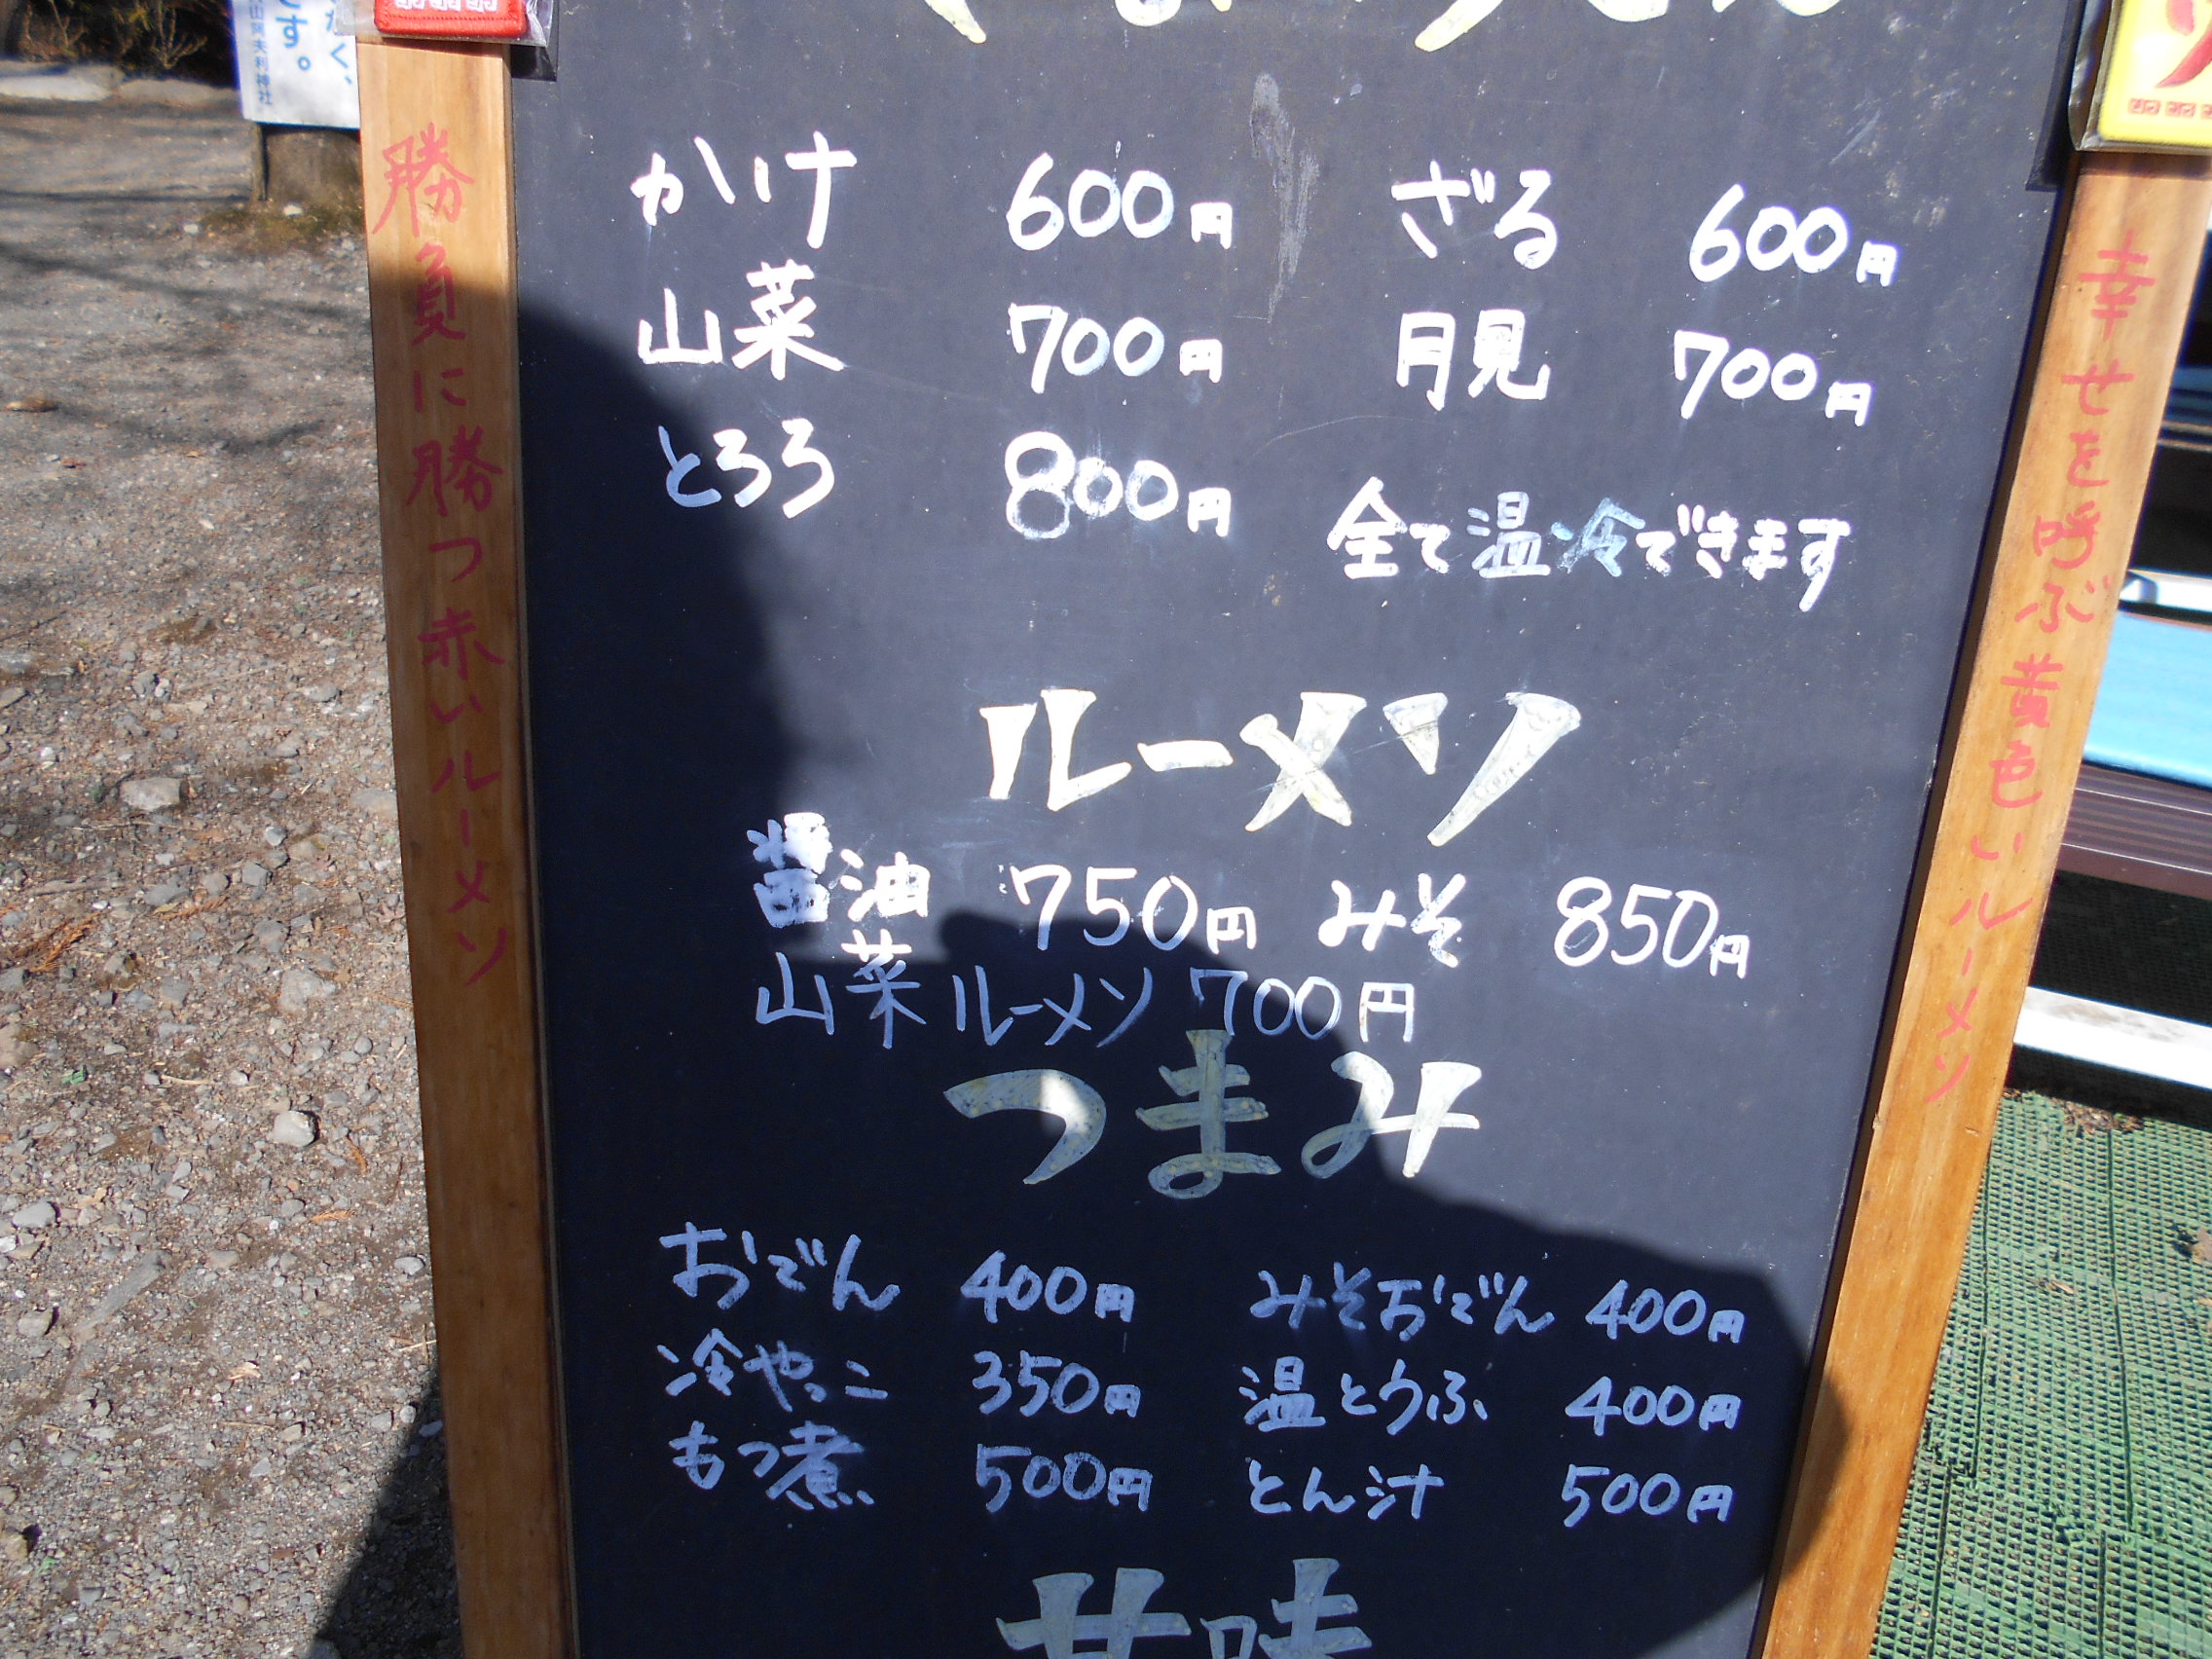 かけ 600円 ざる 600円
山菜 700円 月見 700円
とろろ 800円 全て温冷できます
ルーメソ
醤油 750円 みそ 850円
山菜ルーメソ 700円
つまみ
おでん 400円 みそおでん 400円
冷やっこ 350円 温とうふ 400円
もつ煮 500円 とん汁 500円
甘味
勝負に勝つ赤いルーメソ
幸せを呼ぶ黄色いルーメソ
です。
夫利神社